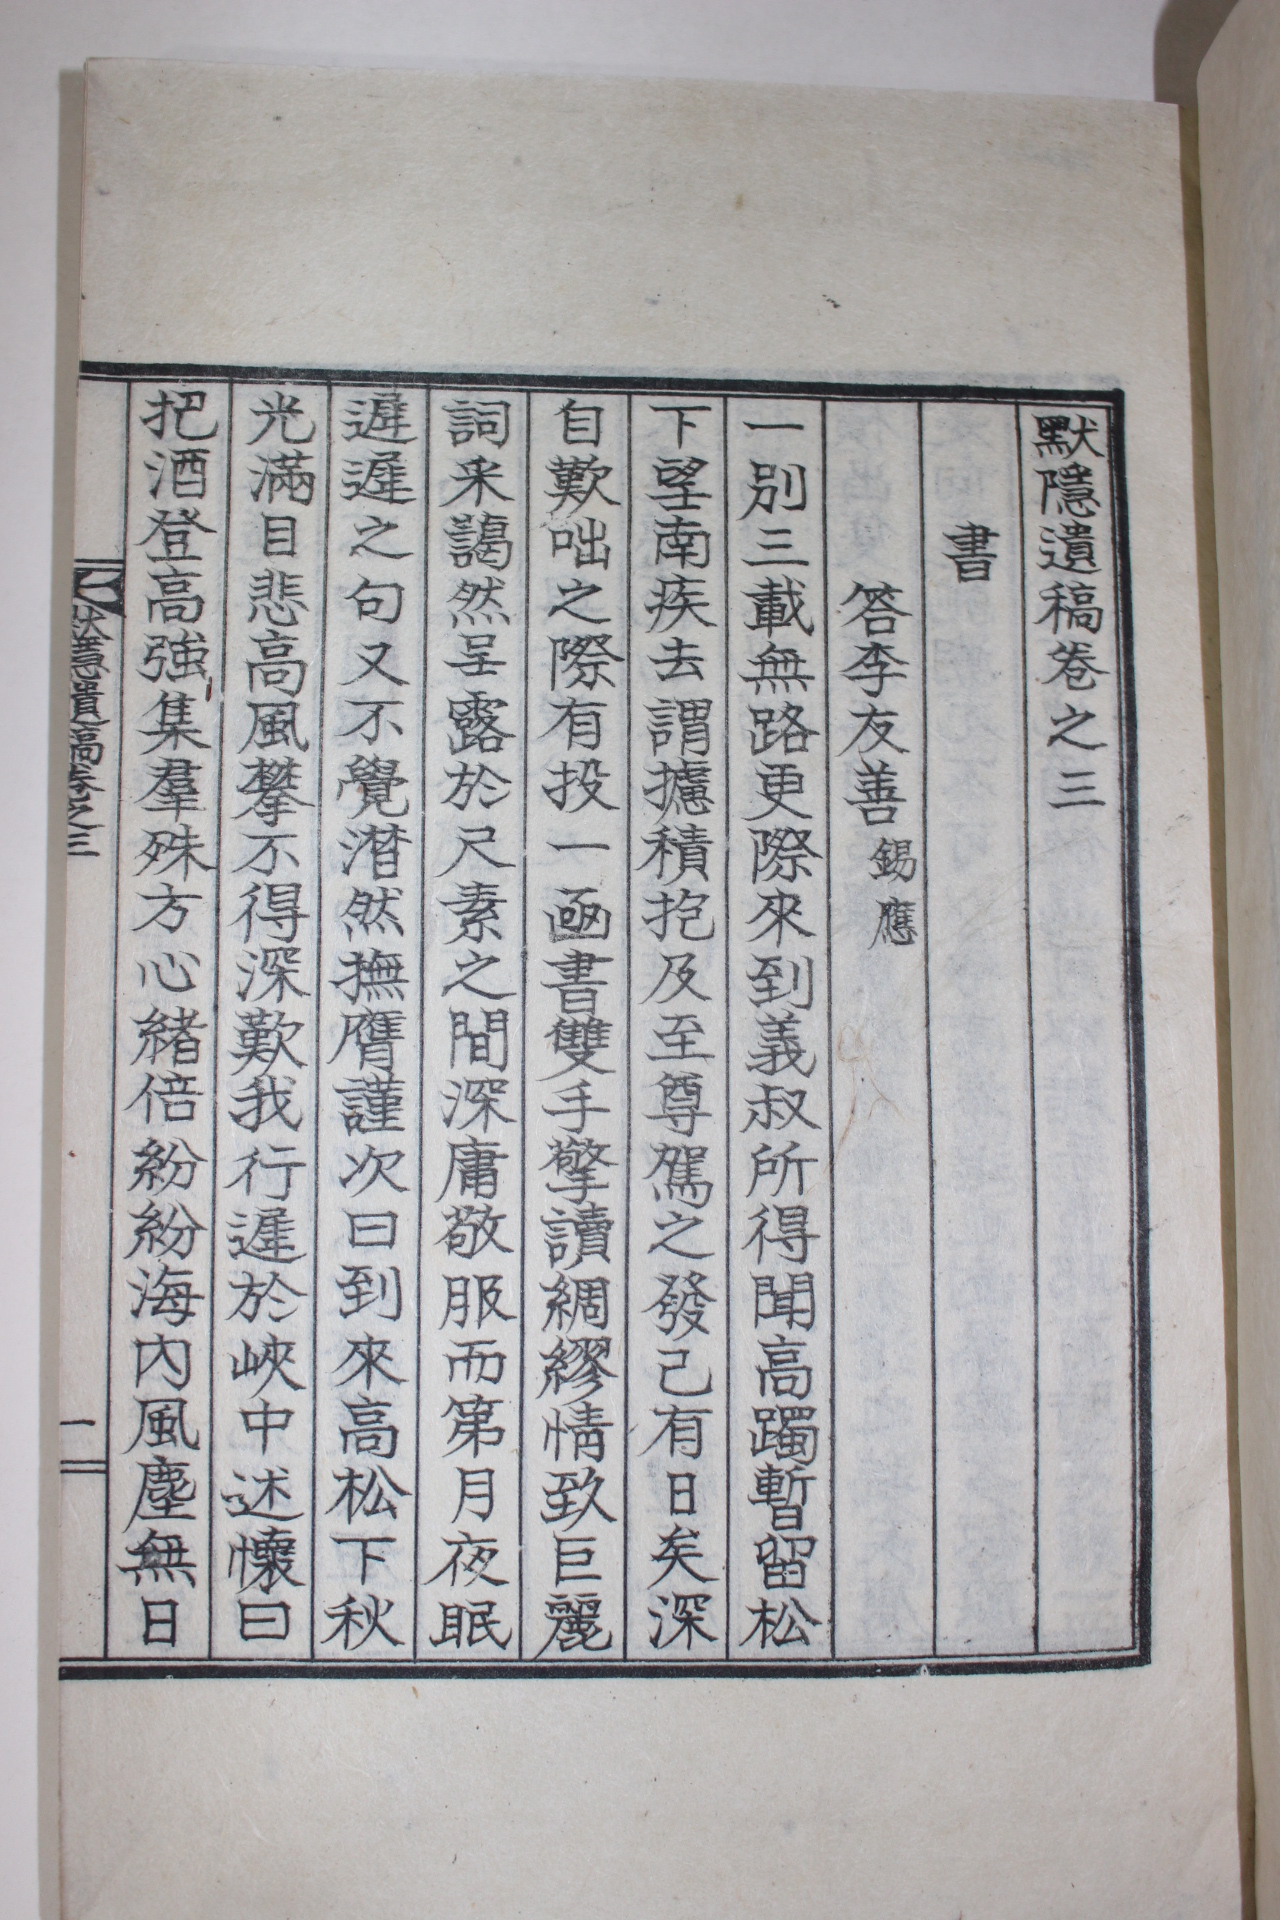 默隱遺稿卷之三
書
答李友善錫應
一別三載無路更際來到義叔所得聞高躅暫留松
下望南疾去謂攄積抱及至尊駕之發已有日矣深
自歎咄之際有投一凾書雙手擎讀綢繆情致巨麗
詞采藹然呈露於尺素之間深庸敬服而第月夜眠
遲遲之句又不覺潸然撫膺謹次曰到來高松下秋
光滿目悲高風攀不得深歎我行遲於峽中述懷曰
把酒登高強集羣殊方心緖倍紛紛海內風塵無日
默隱遺稿卷之三
一